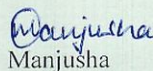 Manjusha
Manjusha